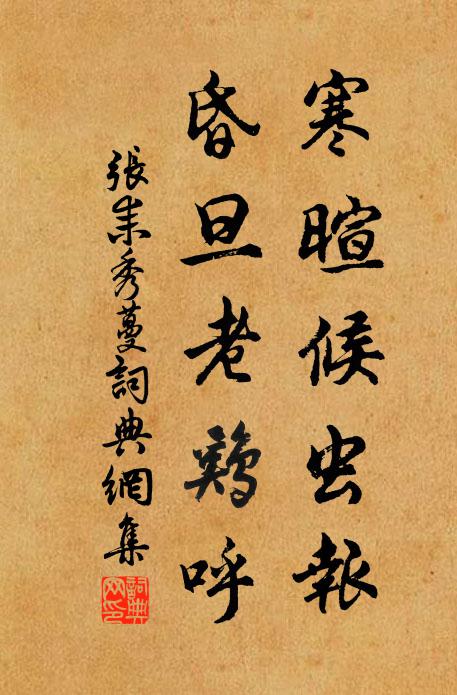 寒暄候虫報
昏旦老鷄呼
張耒秀蔓詞典網集
詞典網印